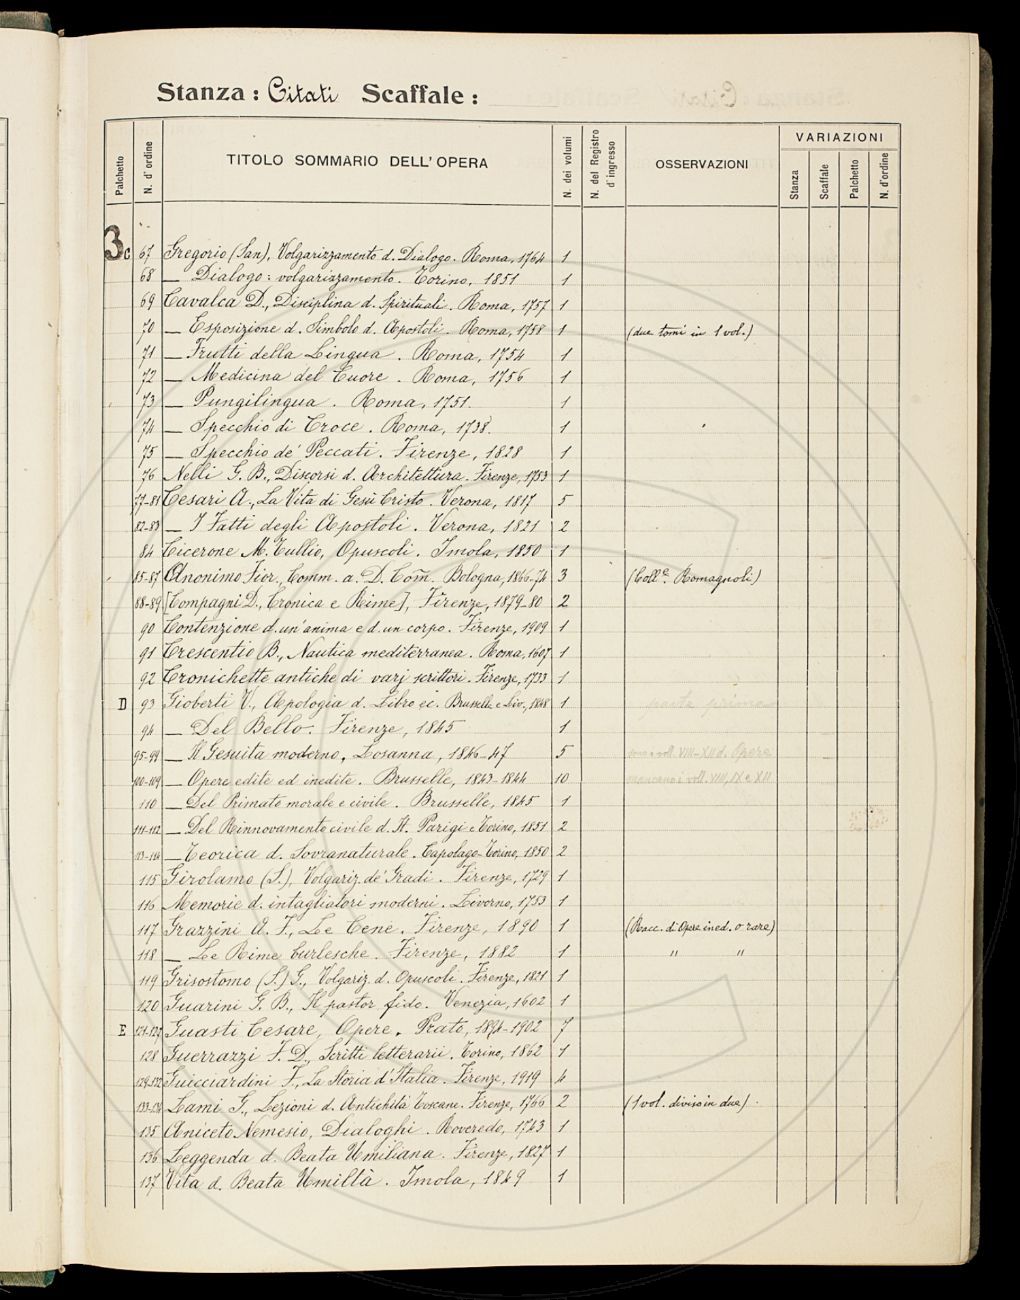 Stanza: Citati Scaffale:
Palchetto N. d'ordine TITOLO SOMMARIO DELL'OPERA N. dei volumi N. del Registro d'ingresso OSSERVAZIONI VARIAZIONI
Stanza Scaffale Palchetto N. d'ordine
3c 67 Gregorio (San), Volgarizzamento d. Dialogo. Roma, 1764 1
68 — Dialogo: volgarizzamento. Torino, 1851 1
69 Cavalca D., Disciplina d. Spirituali. Roma, 1757 1
70 — Esposizione d. Simbolo d. Apostoli. Roma, 1758 1 (due tomi in 1 vol.)
71 — Frutti della Lingua. Roma, 1754 1
72 — Medicina del Cuore. Roma, 1756 1
73 — Pungilingua. Roma, 1751. 1
74 — Specchio di Croce. Roma, 1738. 1
75 — Specchio de' Peccati. Firenze, 1828 1
76 Nelli G. B., Discorsi d. Architettura. Firenze, 1753 1
77-81 Cesari A., La Vita di Gesù Cristo. Verona, 1817 5
82-83 — I Fatti degli Apostoli. Verona, 1821 2
84 Cicerone M. Tullio, Opuscoli. Imola, 1850 1
85-87 Anonimo Fior., Comm. a. D. Com̃. Bologna, 1866-74 3 (Coll.e Romagnoli)
88-89 [Compagni D., Cronica e Rime], Firenze, 1879-80 2
90 Contenzione d. un'anima e d. un corpo. Firenze, 1909 1
91 Crescentio B., Nautica mediterranea. Roma, 1607 1
92 Cronichette antiche di varj scrittori. Firenze, 1733 1
D 93 Gioberti V., Apologia d. Libro ec. Brusselle e Liv., 1848 1 parte prima
94 — Del Bello. Firenze, 1845 1
95-99 — Il Gesuita moderno. Losanna, 1846-47 5 sono i voll. VIII-XII d. Opere
100-109 — Opere edite ed inedite. Brusselle, 1843-1844 10 mancano i voll. VIII, IX e XII
110 — Del Primato morale e civile. Brusselle, 1845 1
111-112 — Del Rinnovamento civile d. It. Parigi e Torino, 1851 2
113-114 — Teorica d. Sovranaturale. Capolago-Torino, 1850 2
115 Girolamo (S.), Volgariz. de' Gradi. Firenze, 1729 1
116 Memorie d. intagliatori moderni. Livorno, 1753 1
117 Grazzini A. F., Le Cene. Firenze, 1890 1 (Racc. di Opere ined. o rare)
118 — Le Rime burlesche. Firenze, 1882 1 " "
119 Grisostomo (S.) G., Volgariz. d. Opuscoli. Firenze, 1821 1
120 Guarini G. B., Il pastor fido. Venezia, 1602 1
E 121-127 Guasti Cesare, Opere. Prato, 1894-1902 7
128 Guerrazzi F. D., Scritti letterarii. Torino, 1862 1
129-132 Guicciardini F., La Storia d'Italia. Firenze, 1919 4
133-134 Lami G., Lezioni d. Antichità Toscane. Firenze, 1766 2 (1 vol. diviso in due).
135 Aniceto Nemesio, Dialoghi. Roveredo, 1743 1
136 Leggenda d. Beata Umiliana. Firenze, 1827 1
137 Vita d. Beata Umiltà. Imola, 1849 1